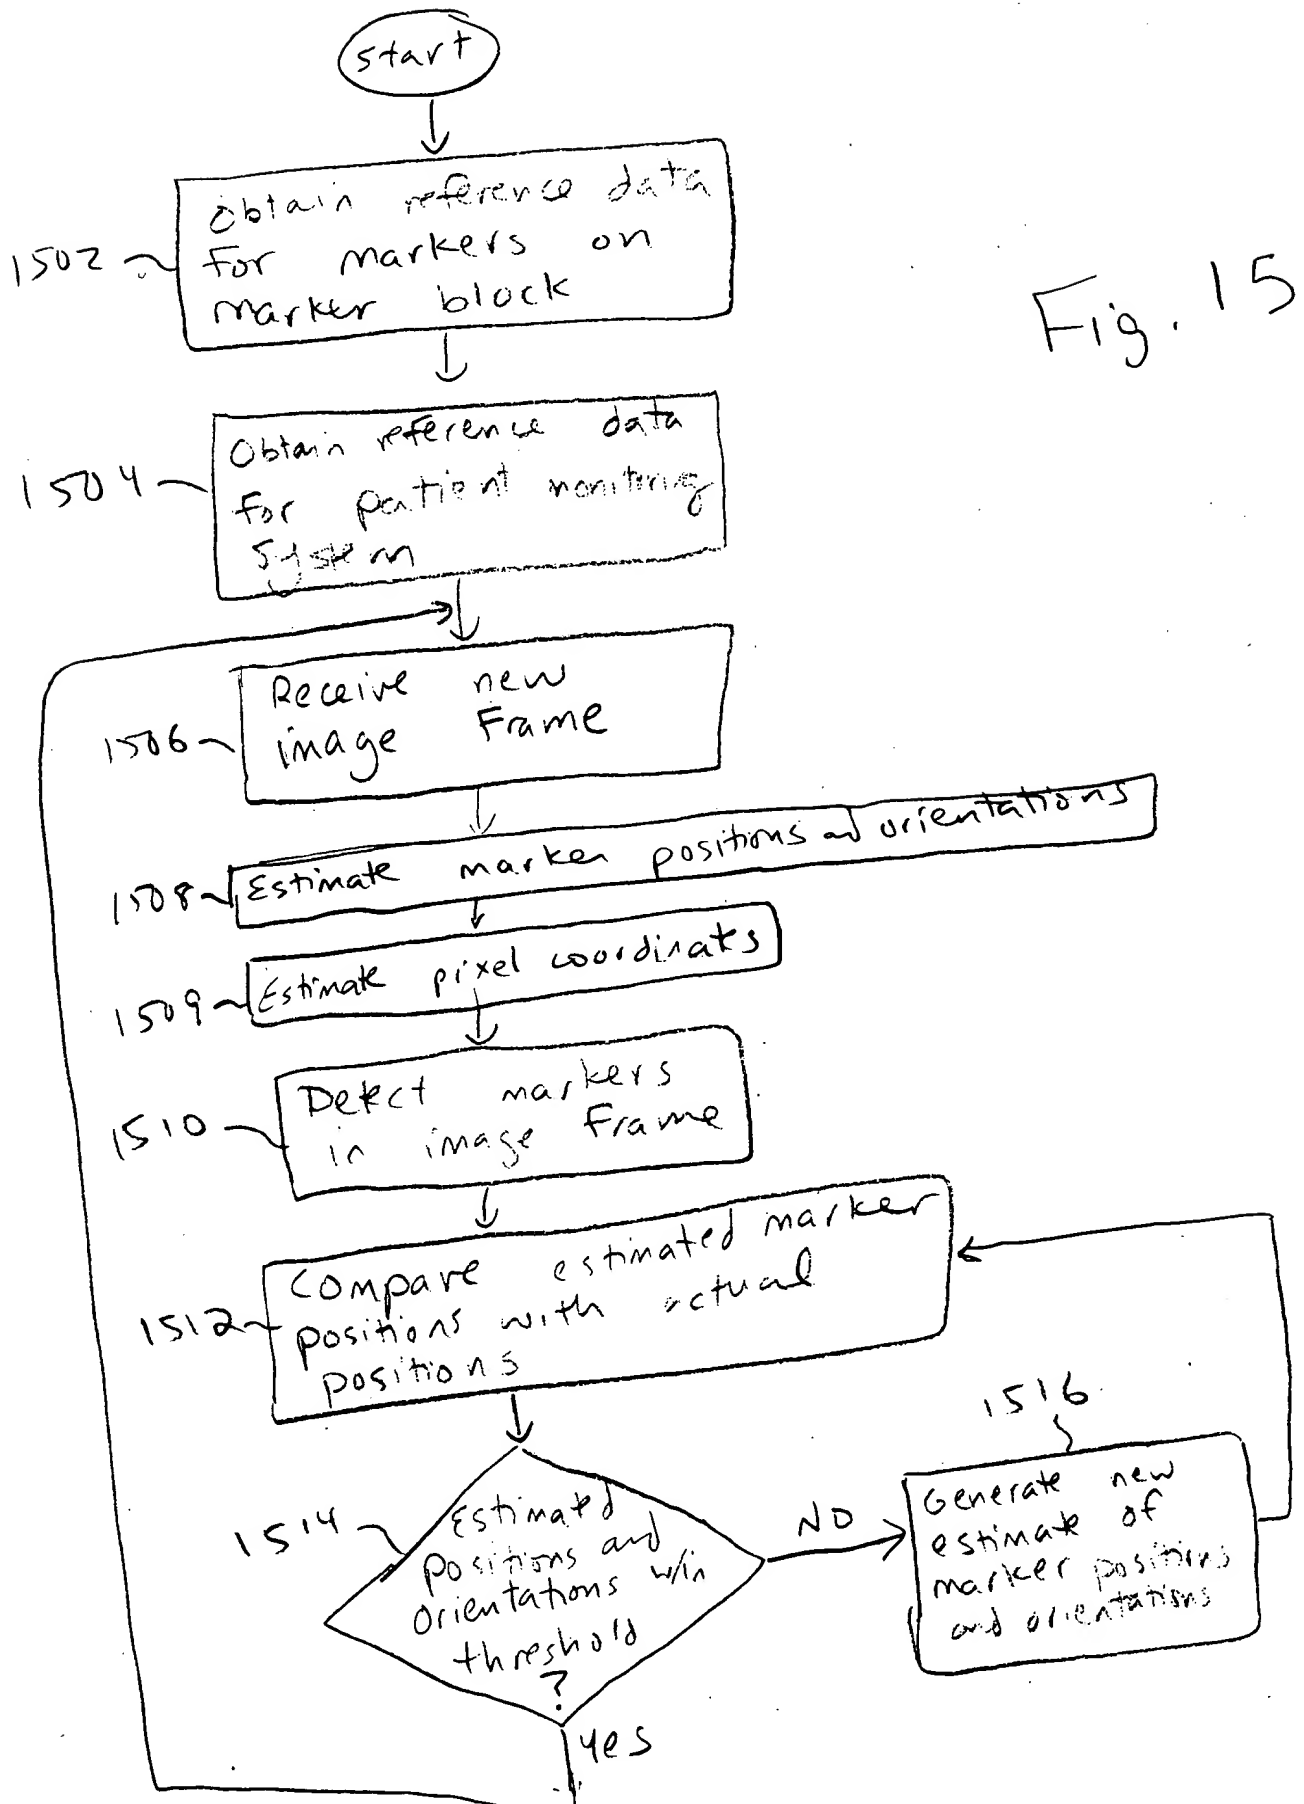 start
Obtain reference data
for markers on
marker block
1502
Fig. 15
Obtain reference data
for patient monitoring
system
1504
Receive new
image Frame
1506
Estimate marker positions and orientations
1508
Estimate pixel coordinats
1509
Detect markers
in image Frame
1510
Compare estimated marker
positions with actual
positions
1512
Estimated
positions and
orientations w/in
threshold
?
1514
NO
1516
Generate new
estimate of
marker positions
and orientations
yes